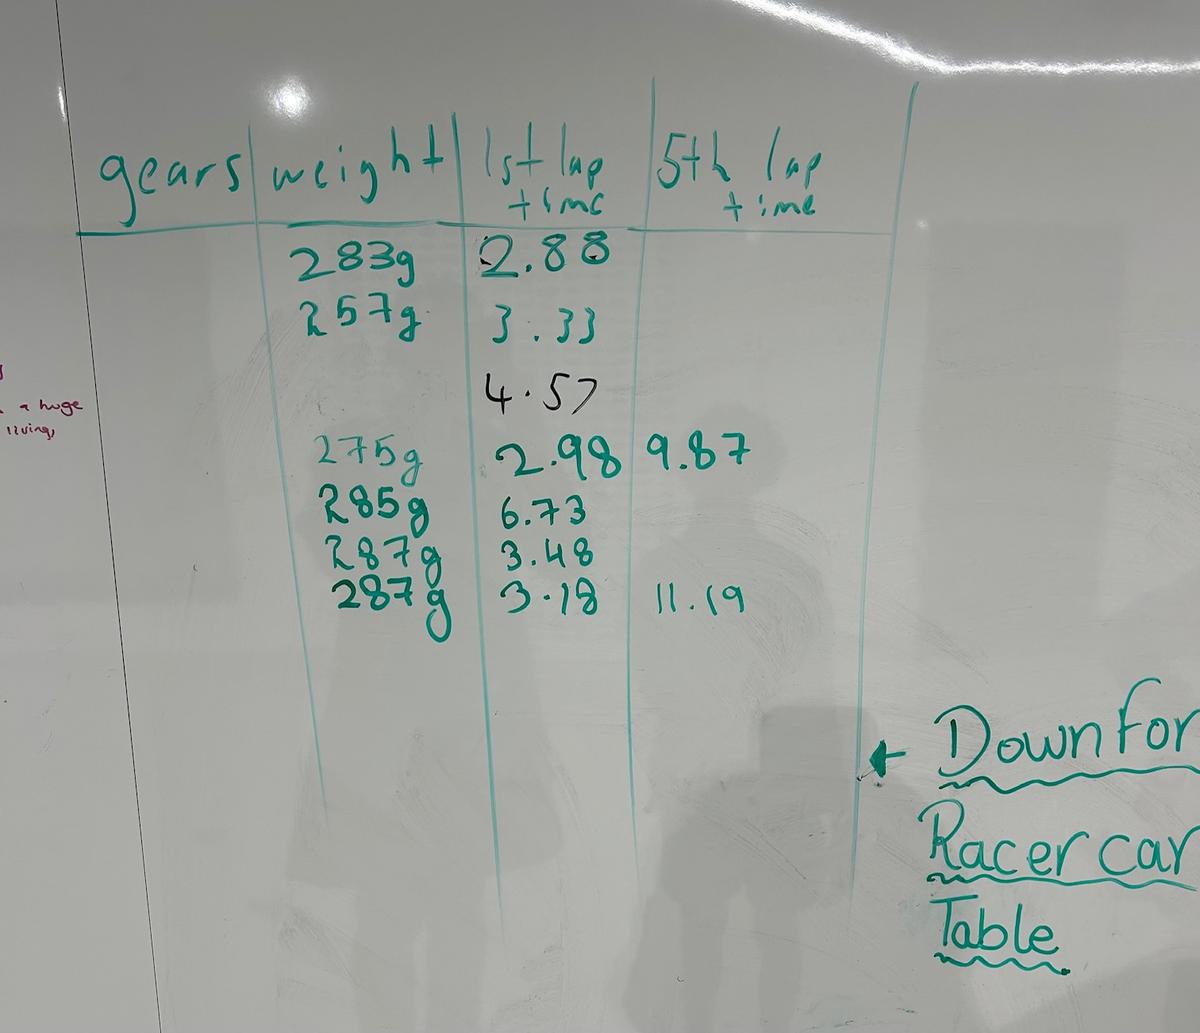 gears weight 1st lap time 5th lap time
283g 2.88
257g 3.33
4.57
275g 2.98 9.87
285g 6.73
287g 3.48
287g 3.18 11.19
a huge
living,
Down For
Racer car
Table